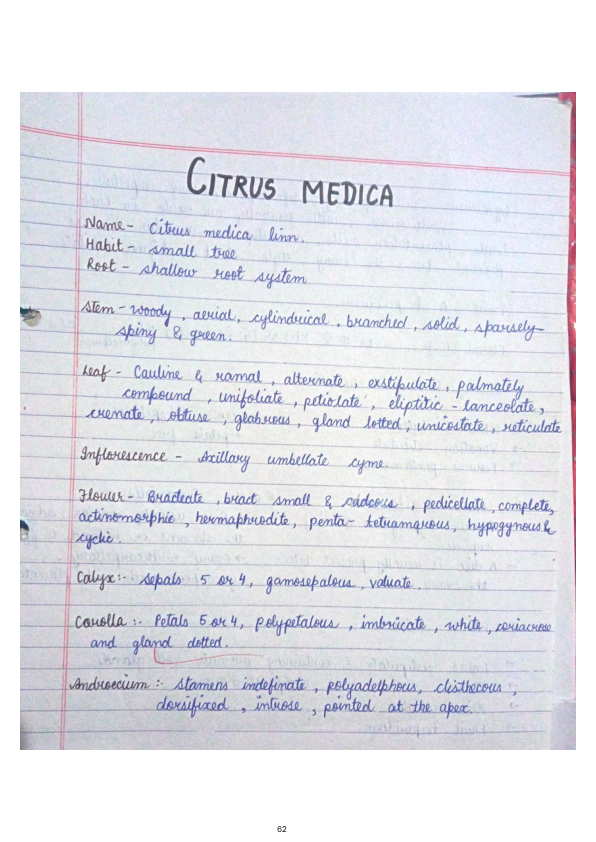 CITRUS MEDICA
Name - Citrus medica linn.
Habit - small tree
Root - shallow root system
Stem - woody, aerial, cylindrical, branched, solid, sparsely
spiny & green.
Leaf - Cauline & ramal, alternate, exstipulate, palmately
compound, unifoliate, petiolate, eliptitic - lanceolate,
crenate, obtuse, glabrous, gland lotted, unicostate, reticulate
Inflorescence - Axillary umbellate cyme.
Flower - Bracteate, bract small & cadcous, pedicellate, complete,
actinomorphic, hermaphrodite, penta- tetramqrous, hypogynous &
cyclic.
Calyx:- sepals 5 or 4, gamosepalous, valuate.
Corolla :- Petals 5 or 4, polypetalous, imbricate, white, coriacrose
and gland dotted.
Androecium :- stamens indefinate, polyadelphous, clisthecous,
dorsifixed, introse, pointed at the apex.
62